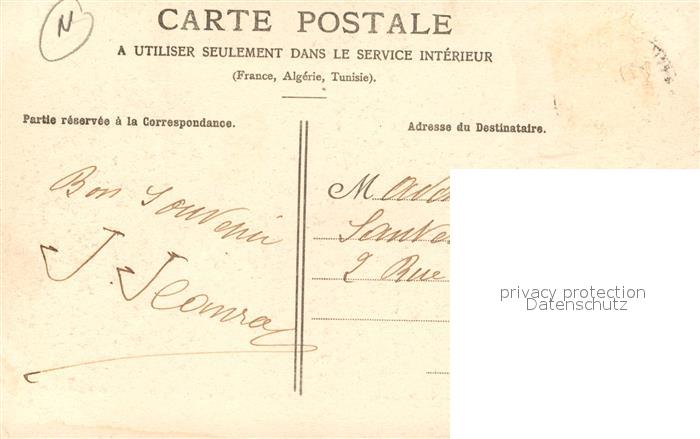 N
CARTE POSTALE
A UTILISER SEULEMENT DANS LE SERVICE INTÉRIEUR
(France, Algérie, Tunisie).
Partie réservée à la Correspondance.
Adresse du Destinataire.
Bon Souvenir
M
2 Rue
privacy protection
Datenschutz